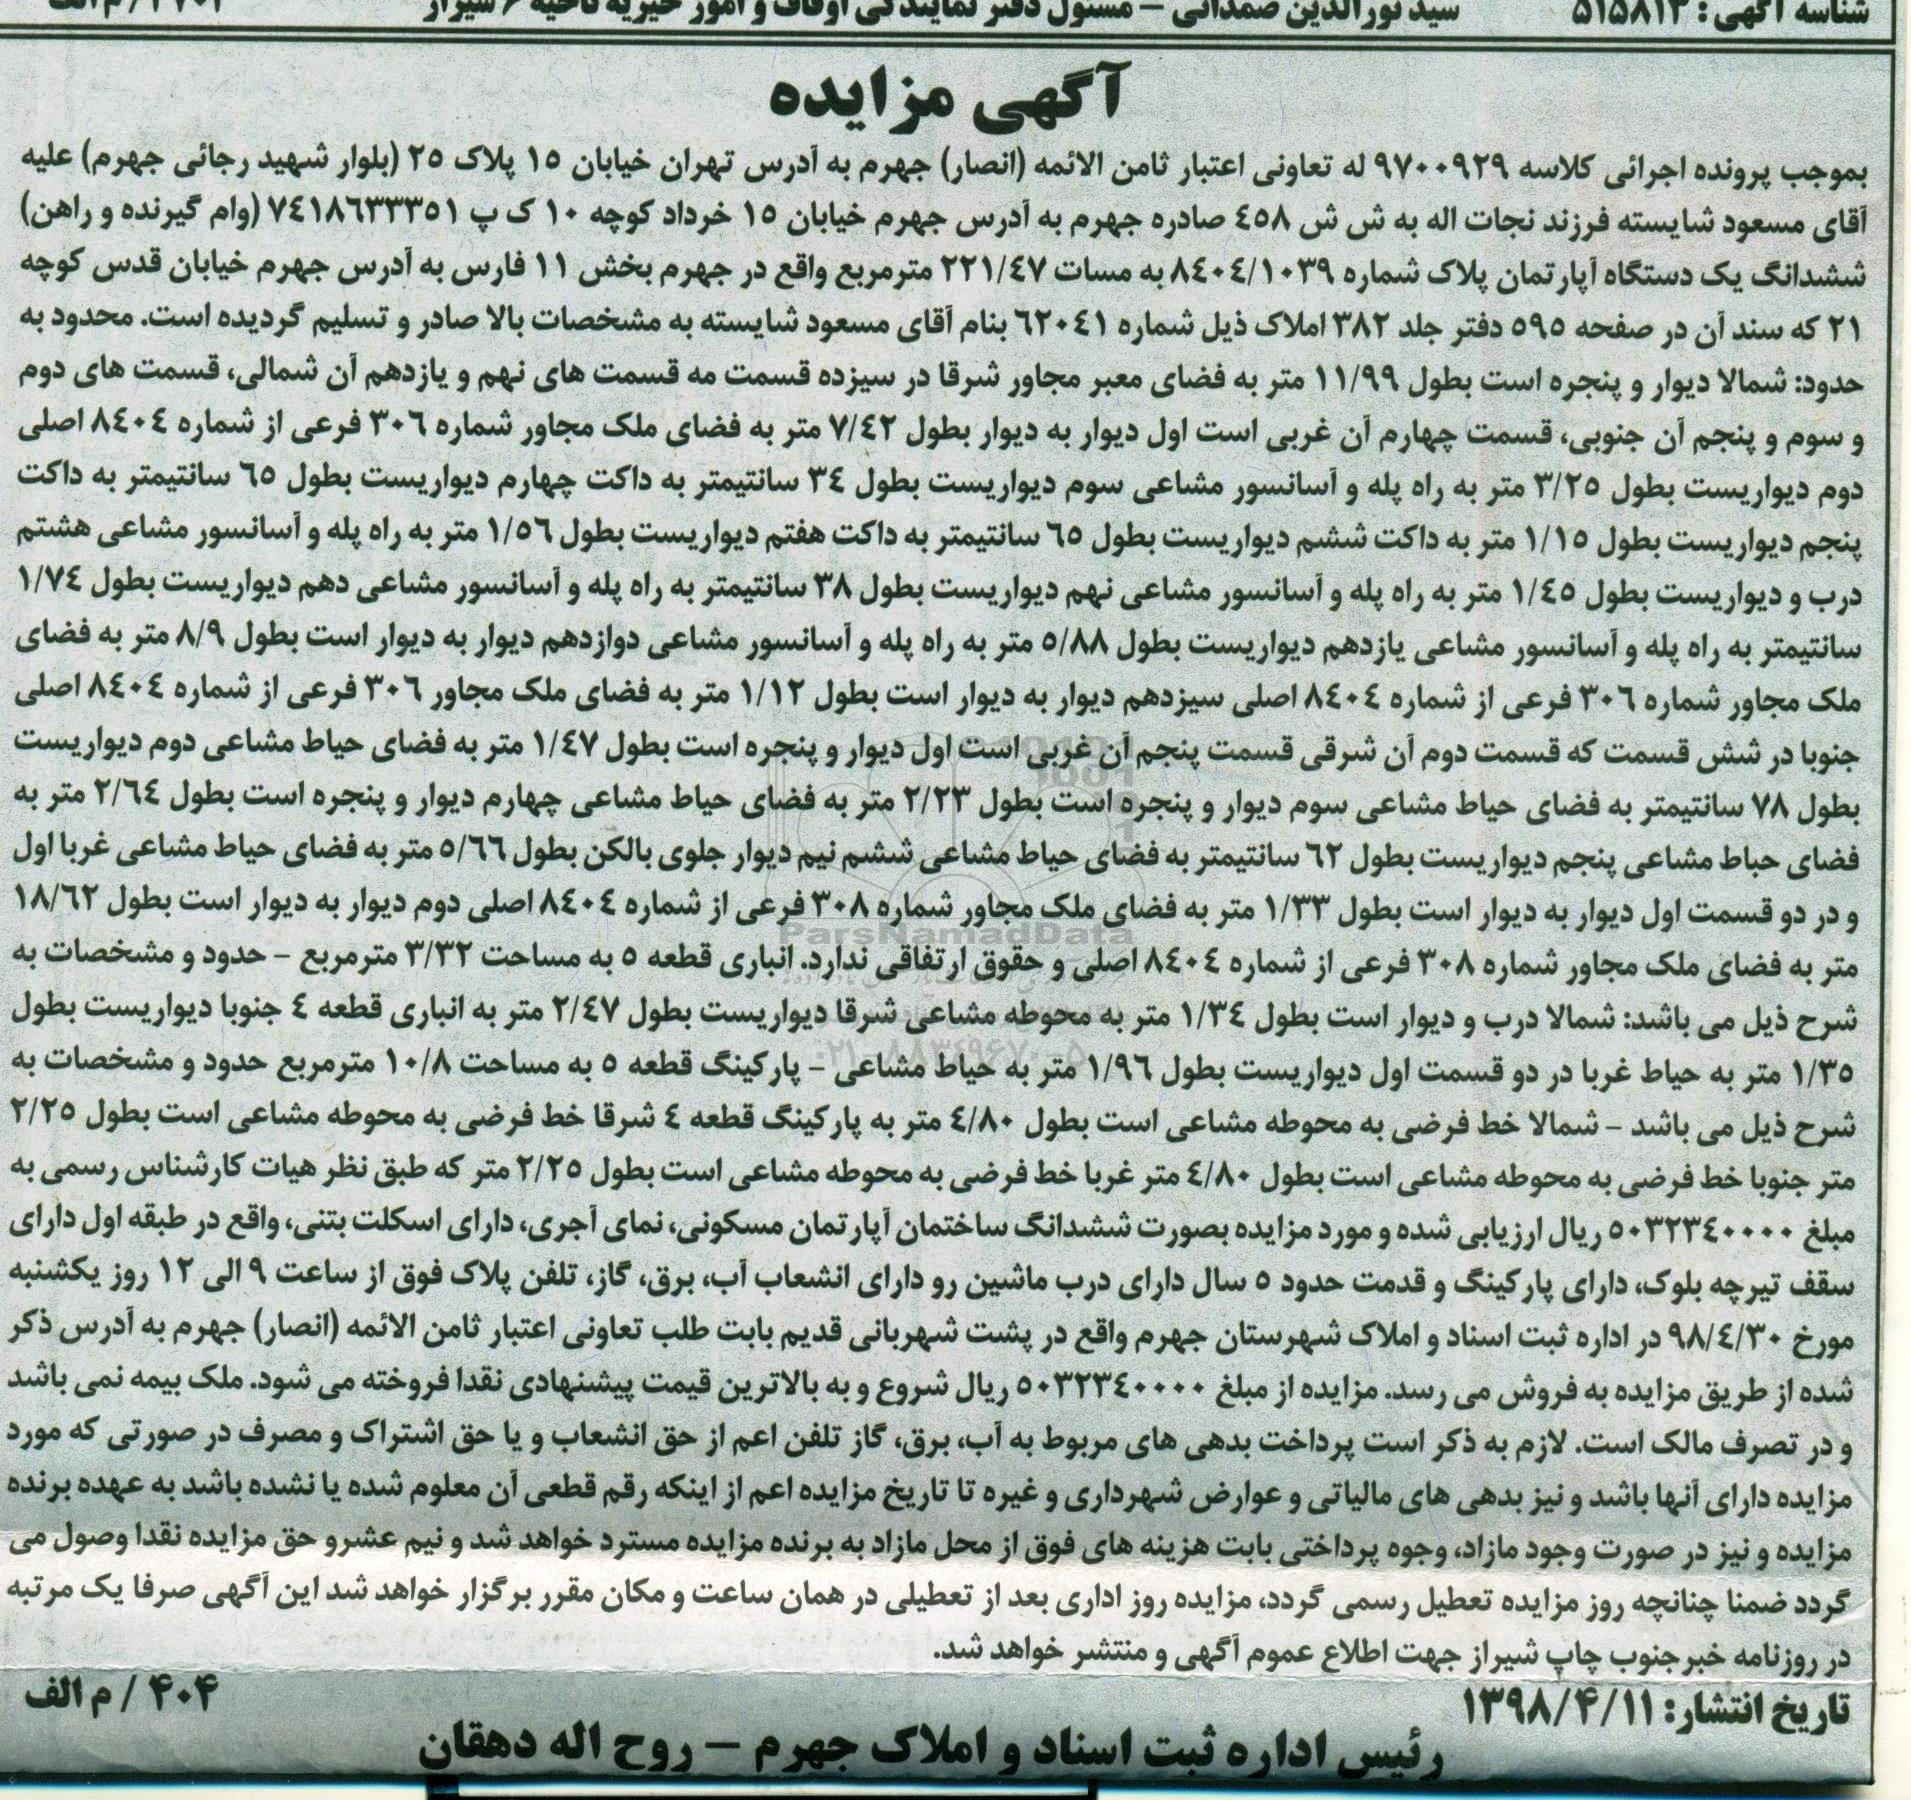 شناسه آگهی: ۵۱۵۸۱۳ سید نورالدین صمدانی – مسئول دفتر نمایندگی اوقاف و امور خیریه ناحیه ۶ شیراز
آگهی مزایده
بموجب پرونده اجرائی کلاسه ۹۷۰۰۹۲۹ له تعاونی اعتبار ثامن الائمه (انصار) جهرم به آدرس تهران خیابان ۱۵ پلاک ۲۵ (بلوار شهید رجائی جهرم) علیه
آقای مسعود شایسته فرزند نجات اله به ش ش ۴۵۸ صادره جهرم به آدرس جهرم خیابان ۱۵ خرداد کوچه ۱۰ ک پ ۷۴۱۸۶۳۳۳۵۱ (وام گیرنده و راهن)
ششدانگ یک دستگاه آپارتمان پلاک شماره ۸۴۰۴/۱۰۳۹ به مسات ۲۲۱/۴۷ مترمربع واقع در جهرم بخش ۱۱ فارس به آدرس جهرم خیابان قدس کوچه
۲۱ که سند آن در صفحه ۵۹۵ دفتر جلد ۳۸۲ املاک ذیل شماره ۶۲۰۴۱ بنام آقای مسعود شایسته به مشخصات بالا صادر و تسلیم گردیده است. محدود به
حدود: شمالا دیوار و پنجره است بطول ۱۱/۹۹ متر به فضای معبر مجاور شرقا در سیزده قسمت مه قسمت های نهم و یازدهم آن شمالی، قسمت های دوم
و سوم و پنجم آن جنوبی، قسمت چهارم آن غربی است اول دیوار به دیوار بطول ۷/۴۲ متر به فضای ملک مجاور شماره ۳۰۶ فرعی از شماره ۸۴۰۴ اصلی
دوم دیواریست بطول ۳/۲۵ متر به راه پله و آسانسور مشاعی سوم دیواریست بطول ۳۴ سانتیمتر به داکت چهارم دیواریست بطول ۶۵ سانتیمتر به داکت
پنجم دیواریست بطول ۱/۱۵ متر به داکت ششم دیواریست بطول ۶۵ سانتیمتر به داکت هفتم دیواریست بطول ۱/۵۶ متر به راه پله و آسانسور مشاعی هشتم
درب و دیواریست بطول ۱/۴۵ متر به راه پله و آسانسور مشاعی نهم دیواریست بطول ۳۸ سانتیمتر به راه پله و آسانسور مشاعی دهم دیواریست بطول ۱/۷۴
سانتیمتر به راه پله و آسانسور مشاعی یازدهم دیواریست بطول ۵/۸۸ متر به راه پله و آسانسور مشاعی دوازدهم دیوار به دیوار است بطول ۸/۹ متر به فضای
ملک مجاور شماره ۳۰۶ فرعی از شماره ۸۴۰۴ اصلی سیزدهم دیوار به دیوار است بطول ۱/۱۲ متر به فضای ملک مجاور ۳۰۶ فرعی از شماره ۸۴۰۴ اصلی
جنوبا در شش قسمت که قسمت دوم آن شرقی قسمت پنجم آن غربی است اول دیوار و پنجره است بطول ۱/۴۷ متر به فضای حیاط مشاعی دوم دیواریست
بطول ۷۸ سانتیمتر به فضای حیاط مشاعی سوم دیوار و پنجره است بطول ۲/۲۳ متر به فضای حیاط مشاعی چهارم دیوار و پنجره است بطول ۲/۶۴ متر به
فضای حباط مشاعی پنجم دیواریست بطول ۶۲ سانتیمتر به فضای حیاط مشاعی ششم نیم دیوار جلوی بالکن بطول ۵/۶۶ متر به فضای حیاط مشاعی غربا اول
و در دو قسمت اول دیوار به دیوار است بطول ۱/۳۳ متر به فضای ملک مجاور شماره ۳۰۸ فرعی از شماره ۸۴۰۴ اصلی دوم دیوار به دیوار است بطول ۱۸/۶۲
ParsNamadData
متر به فضای ملک مجاور شماره ۳۰۸ فرعی از شماره ۸۴۰۴ اصلی و حقوق ارتفاقی ندارد. انباری قطعه ۵ به مساحت ۳/۳۲ مترمربع – حدود و مشخصات به
شرح ذیل می باشد: شمالا درب و دیوار است بطول ۱/۳۴ متر به محوطه مشاعی شرقا دیواریست بطول ۲/۴۷ متر به انباری قطعه ۴ جنوبا دیواریست بطول
۰۲۱-۸۸۳۴۹۶۷۰-۵
۱/۳۵ متر به حیاط غربا در دو قسمت اول دیواریست بطول ۱/۹۶ متر به حیاط مشاعی – پارکینگ قطعه ۵ به مساحت ۱۰/۸ مترمربع حدود و مشخصات به
شرح ذیل می باشد – شمالا خط فرضی به محوطه مشاعی است بطول ۴/۸۰ متر به پارکینگ قطعه ۴ شرقا خط فرضی به محوطه مشاعی است بطول ۲/۲۵
متر جنوبا خط فرضی به محوطه مشاعی است بطول ۴/۸۰ متر غربا خط فرضی به محوطه مشاعی است بطول ۲/۲۵ متر که طبق نظر هیات کارشناس رسمی به
مبلغ ۵۰۳۲۳۴۰۰۰۰ ریال ارزیابی شده و مورد مزایده بصورت ششدانگ ساختمان آپارتمان مسکونی، نمای آجری، دارای اسکلت بتنی، واقع در طبقه اول دارای
سقف تیرچه بلوک، دارای پارکینگ و قدمت حدود ۵ سال دارای درب ماشین رو دارای انشعاب آب، برق، گاز، تلفن پلاک فوق از ساعت ۹ الی ۱۲ روز یکشنبه
مورخ ۹۸/۴/۳۰ در اداره ثبت اسناد و املاک شهرستان جهرم واقع در پشت شهربانی قدیم بابت طلب تعاونی اعتبار ثامن الائمه (انصار) جهرم به آدرس ذکر
شده از طریق مزایده به فروش می رسد. مزایده از مبلغ ۵۰۳۲۳۴۰۰۰۰ ریال شروع و به بالاترین قیمت پیشنهادی نقدا فروخته می شود. ملک بیمه نمی باشد
و در تصرف مالک است. لازم به ذکر است پرداخت بدهی های مربوط به آب، برق، گاز تلفن اعم از حق انشعاب و یا حق اشتراک و مصرف در صورتی که مورد
مزایده دارای آنها باشد و نیز بدهی های مالیاتی و عوارض شهرداری و غیره تا تاریخ مزایده اعم از اینکه رقم قطعی آن معلوم شده یا نشده باشد به عهده برنده
مزایده و نیز در صورت وجود مازاد، وجوه پرداختی بابت هزینه های فوق از محل مازاد به برنده مزایده مسترد خواهد شد و نیم عشرو حق مزایده نقدا وصول می
گردد ضمنا چنانچه روز مزایده تعطیل رسمی گردد، مزایده روز اداری بعد از تعطیلی در همان ساعت و مکان مقرر برگزار خواهد شد این آگهی صرفا یک مرتبه
در روزنامه خبرجنوب چاپ شیراز جهت اطلاع عموم آگهی و منتشر خواهد شد.
تاریخ انتشار: ۱۳۹۸/۴/۱۱ ۴۰۴ / م الف
رئیس اداره ثبت اسناد و املاک جهرم – روح اله دهقان